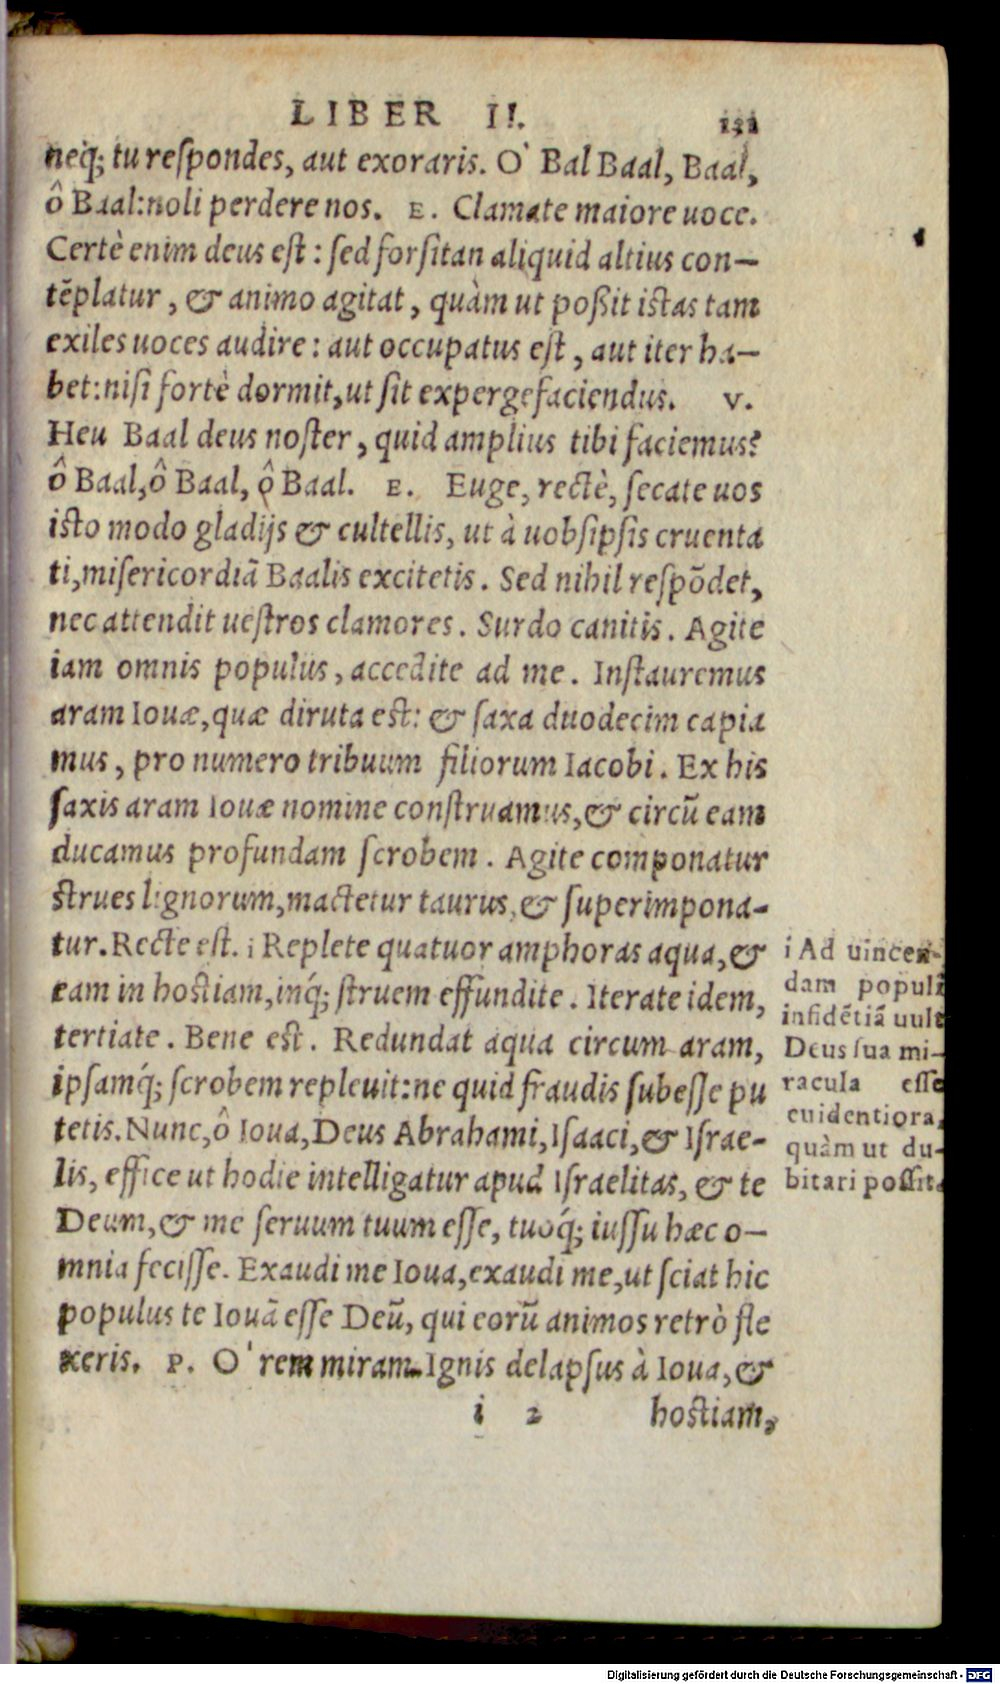 LIBER II. 131
neq́; tu respondes, aut exoraris. O' Bal Baal, Baal,
ô Baal: noli perdere nos. E. Clamate maiore uoce.
Certè enim deus est: sed forsitan aliquid altius con-
tẽplatur, & animo agitat, quàm ut poßit istas tam
exiles uoces audire: aut occupatus est, aut iter ha-
bet: nisi fortè dormit, ut sit expergefaciendus. V.
Heu Baal deus noster, quid amplius tibi faciemus?
ô Baal, ô Baal, ô Baal. E. Euge, rectè, secate uos
isto modo gladijs & cultellis, ut à uobsipsis cruenta
ti, misericordiã Baalis excitetis. Sed nihil respõdet,
nec attendit uestros clamores. Surdo canitis. Agite
iam omnis populus, accedite ad me. Instauremus
aram Iouæ, quæ diruta est: & saxa duodecim capia
mus, pro numero tribuum filiorum Iacobi. Ex his
saxis aram Iouæ nomine construamus, & circũ eam
ducamus profundam scrobem. Agite componatur
strues lignorum, mactetur taurus, & superimpona-
tur. Recte est. i Replete quatuor amphoras aqua, &
eam in hostiam, inq́; struem effundite. Iterate idem,
tertiate. Bene est. Redundat aqua circum aram,
ipsamq́; scrobem repleuit: ne quid fraudis subesse pu
tetis. Nunc, ô Ioua, Deus Abrahami, Isaaci, & Israe-
lis, effice ut hodie intelligatur apud Israelitas, & te
Deum, & me seruum tuum esse, tuoq́; iussu hæc o-
mnia fecisse. Exaudi me Ioua, exaudi me, ut sciat hic
populus te Iouã esse Deũ, qui eorũ animos retrò fle
xeris. P. O' rem miram. Ignis delapsus à Ioua, &
i 2 hostiam,
i Ad uincen-
dam populi
infidẽtiã uult
Deus sua mi-
racula esse
euidentiora,
quàm ut du-
bitari possit.
Digitalisierung gefördert durch die Deutsche Forschungsgemeinschaft - DFG